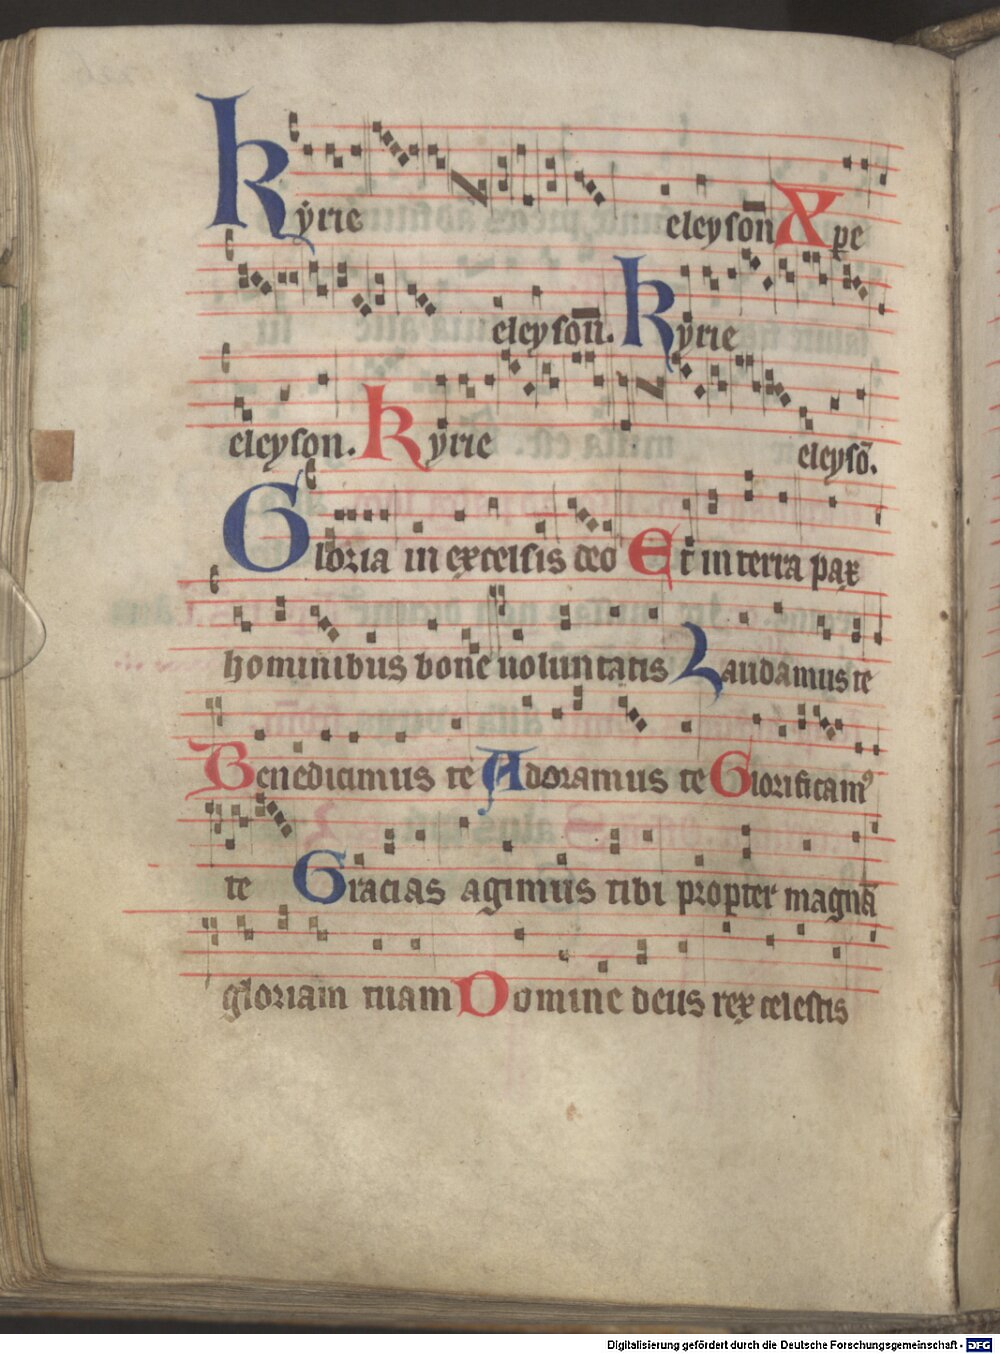 kyrie eleyson̄ Xpe
eleyson̄. kyrie
eleyson. kyrie eleysō.
Gloria in excelsis deo Et in terra pax
hominibus bone uoluntatis Laudamus te
Benedicimus te Adoramus te Glorificamꝰ
te Gracias agimus tibi propter magnā
gloriam tuam Domine deus rex celestis
Digitalisierung gefördert durch die Deutsche Forschungsgemeinschaft - DFG